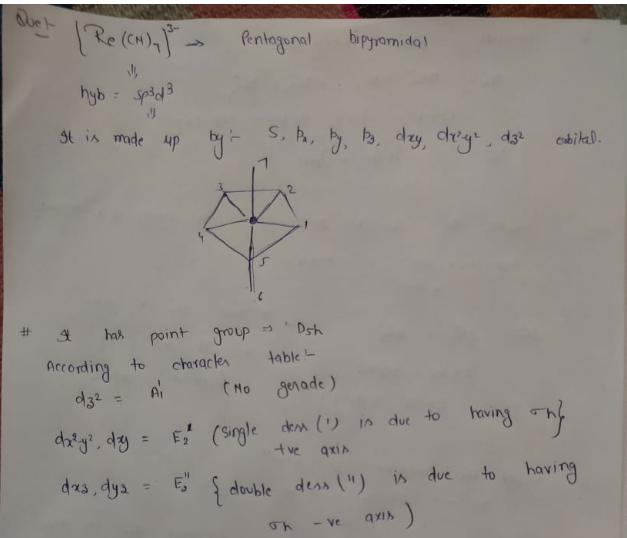 Ques:- [Re(CN)7]3- → Pentagonal bipyramidal
hyb = sp3d3
It is made up by :- S, Px, Py, Pz, dxy, dx2-y2, dz2 orbital.
7
3 2
4 1
5
6
# It has point group ⇒ D5h
According to character table :-
dz2 = A1' (No gerade)
dx2-y2, dxy = E2' (Single dess (') is due to having σh}
+ve axis
dxz, dyz = E2'' { double dess (") is due to having
σh -ve axis )